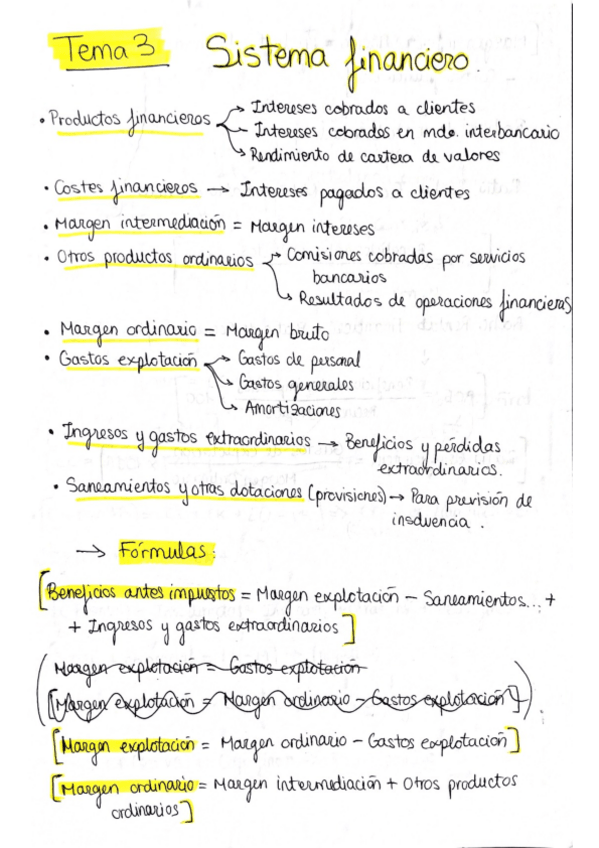 Tema 3 Sistema financiero.
• Productos financieros → Intereses cobrados a clientes
→ Intereses cobrados en mdo. interbancario
→ Rendimiento de cartera de valores
• Costes financieros → Intereses pagados a clientes
• Margen intermediación = Margen intereses
• Otros productos ordinarios → Comisiones cobradas por servicios
bancarios
→ Resultados de operaciones financieras
• Margen ordinario = Margen bruto
• Gastos explotación → Gastos de personal
→ Gastos generales
→ Amortizaciones
• Ingresos y gastos extraordinarios → Beneficios y pérdidas
extraordinarios.
• Saneamientos y otras dotaciones (provisiones) → Para previsión de
insolvencia.
→ Fórmulas:
[Beneficios antes impuestos = Margen explotación - Saneamientos... +
+ Ingresos y gastos extraordinarios]
(Margen explotación = Gastos explotación
[Margen explotación = Margen ordinario - Gastos explotación]).
[Margen explotación = Margen ordinario - Gastos explotación]
[Margen ordinario = Margen intermediación + Otros productos
ordinarios]